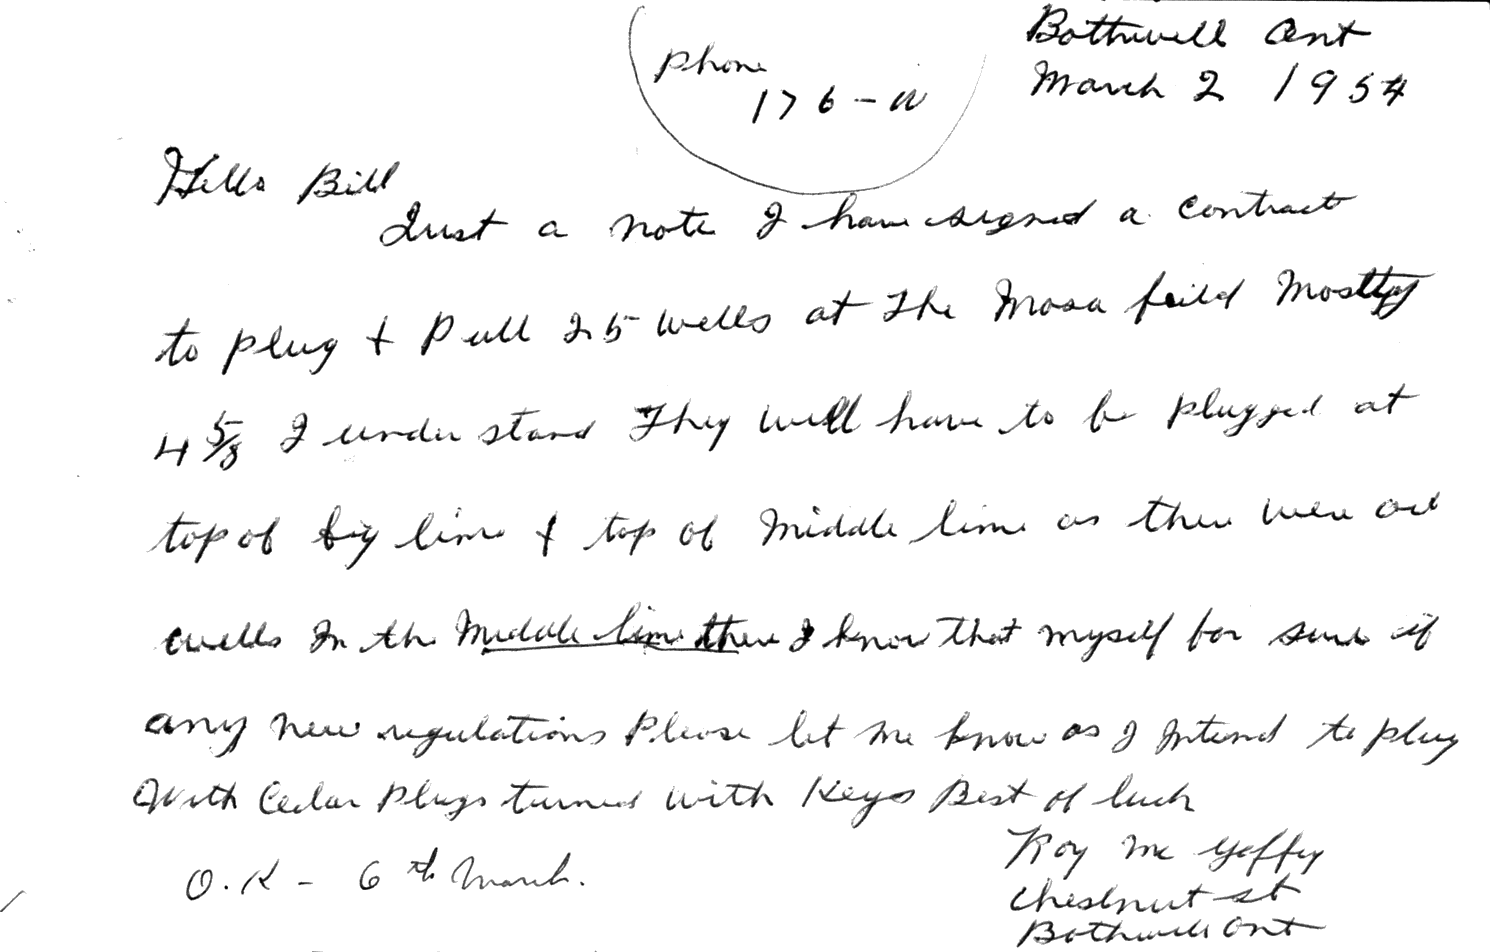 Bothwell Ont
Phone
176-W
March 2 1954
Hello Bill
Just a note I have signed a contract
to plug & Pull 25 wells at The Mosa feild Mostly
4 5/8 I under stand They will have to be plugged at
top of big lime & top of Middle lime as there were
wells In the Middle lime there I know That myself for sure if
any new regulations Please let me know as I Intend to plug
With Cedar Plugs turned with Keys Best of luck
Roy Mc
O.K - 6th March.
Chestnut st
Bothwell Ont